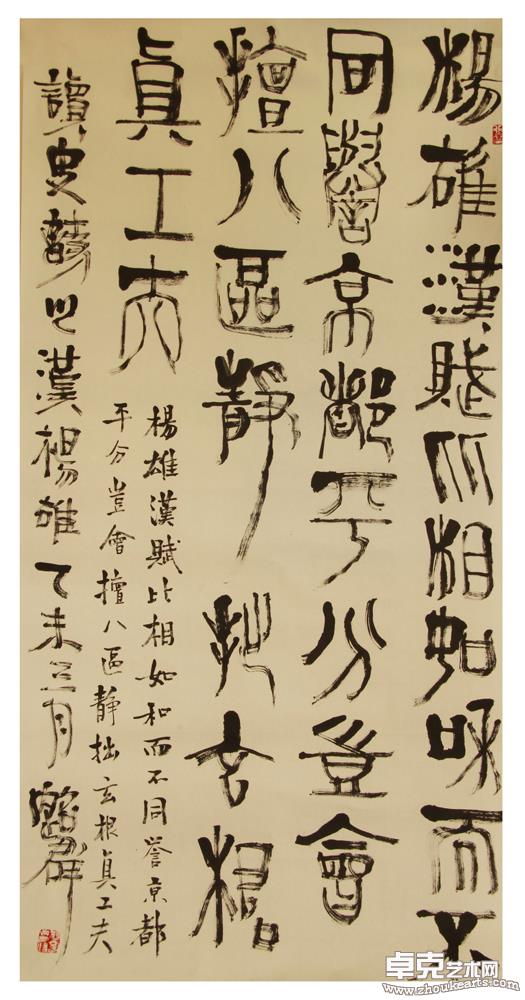 楊雄漢賦比相如和而不
同譽京都平分豈會
擅八區静拙玄根
真工夫
楊雄漢賦比相如和而不同譽京都
平分豈會擅八區静拙玄根真工夫
讀史詩之漢楊雄乙未三月
卓克艺术网
www.zhoukearts.com